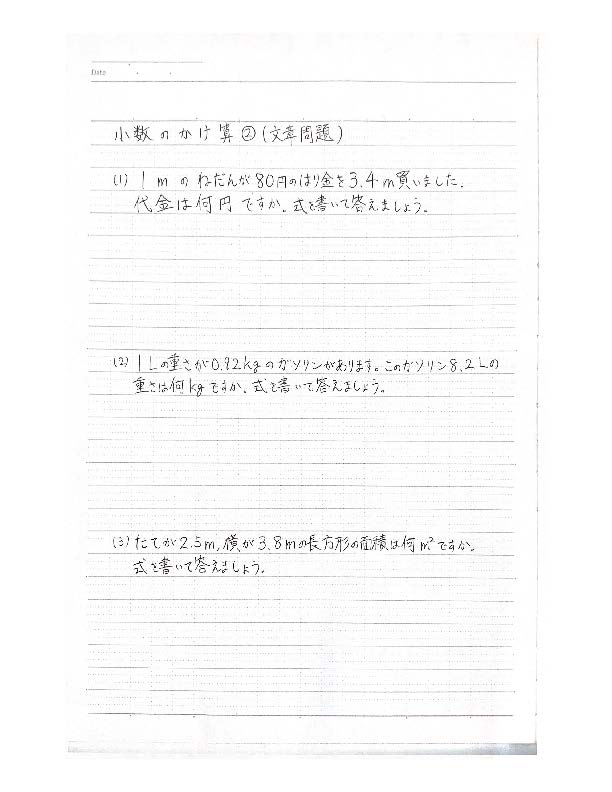 Date ・ ・
小数のかけ算②(文章問題)
(1) 1mのねだんが80円のはり金を3.4m買いました。
代金は何円ですか。式を書いて答えましょう。
(2) 1Lの重さが0.92kgのガソリンがあります。このガソリン8.2Lの
重さは何kgですか。式を書いて答えましょう。
(3) たてが2.5m,横が3.8mの長方形の面積は何m²ですか。
式を書いて答えましょう。